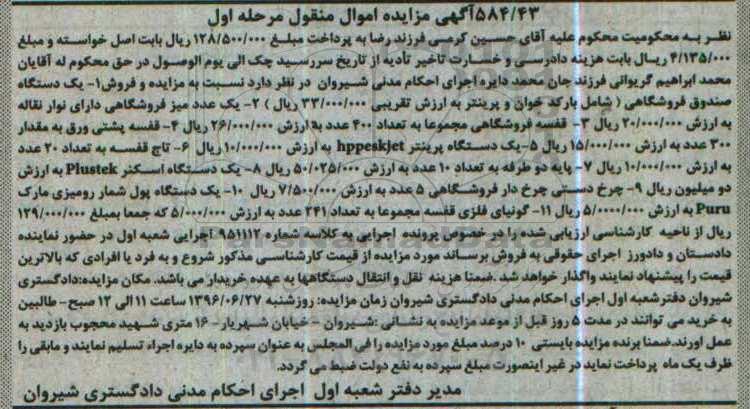 ۵۸۴/۴۳آگهی مزایده اموال منقول مرحله اول
نظر به محکومیت محکوم علیه آقای حسین کرمی فرزند رضا به پرداخت مبلغ ۱۲۸/۵۰۰/۰۰۰ ریال بابت اصل خواسته و مبلغ
۴/۱۳۵/۰۰۰ ریال بابت هزینه دادرسی و خسارت تاخیر تأدیه از تاریخ سررسید چک الی یوم الوصول در حق محکوم له آقایان
محمد ابراهیم گریوانی فرزند جان محمد دایره اجرای احکام مدنی شیروان در نظر دارد نسبت به مزایده و فروش۱- یک دستگاه
صندوق فروشگاهی ( شامل بارکد خوان و پرینتر به ارزش تقریبی ۳۳/۰۰۰/۰۰۰ ریال ) ۲- یک عدد میز فروشگاهی دارای نوار نقاله
به ارزش ۲۰/۰۰۰/۰۰۰ ریال ۳- قفسه فروشگاهی مجموعا به تعداد ۴۰۰ عدد به ارزش ۲۶/۰۰۰/۰۰۰ ریال ۴- قفسه پشتی ورق به مقدار
۳۰۰ عدد به ارزش ۱۵/۰۰۰/۰۰۰ ریال ۵-یک دستگاه پرینتر hppeskjet به ارزش ۱۰/۰۰۰/۰۰۰ ریال ۶- تاج قفسه به تعداد ۲۰ عدد
به ارزش ۱۰/۰۰۰/۰۰۰ ریال ۷- پایه دو طرفه به تعداد ۱۰ عدد به ارزش ۵۰/۰۲۵/۰۰۰ ریال ۸- یک دستگاه اسکنر Plustek به ارزش
دو میلیون ریال ۹- چرخ دستی چرخ دار فروشگاهی ۵ عدد به ارزش ۷/۵۰۰/۰۰۰ ریال ۱۰- یک دستگاه پول شمار رومیزی مارک
Puru به ارزش ۵/۰۰۰۰/۰۰۰ ریال ۱۱- گونیای فلزی قفسه مجموعا به تعداد ۲۴۱ عدد به ارزش ۵/۰۰۰/۰۰۰ که جمعا بمبلغ ۱۲۹/۰۰۰/۰۰۰
ریال از ناحیه کارشناسی ارزیابی شده را در خصوص پرونده اجرایی به کلاسه شماره ۹۵۱۱۱۲ اجرایی شعبه اول در حضور نماینده
دادستان و دادورز اجرای حقوقی به فروش برساند مورد مزایده از قیمت کارشناسی مذکور شروع و به فرد یا افرادی که بالاترین
قیمت را پیشنهاد نمایند واگذار خواهد شد .ضمنا هزینه نقل و انتقال دستگاهها به عهده خریدار می باشد. مکان مزایده:دادگستری
شیروان دفترشعبه اول اجرای احکام مدنی دادگستری شیروان زمان مزایده: روزشنبه ۱۳۹۶/۰۶/۲۷ ساعت ۱۱ الی ۱۲ صبح- طالبین
به خرید می توانند در مدت ۵ روز قبل از موعد مزایده به نشانی :شیروان - خیابان شهریار- ۱۶ متری شهید محجوب بازدید به
عمل آورند.ضمنا برنده مزایده بایستی ۱۰ درصد مبلغ مورد مزایده را فی المجلس به عنوان سپرده به دایره اجراء تسلیم نمایند و مابقی را
ظرف یک ماه پرداخت نماید در غیر اینصورت مبلغ سپرده به نفع دولت ضبط می گردد.
مدیر دفتر شعبه اول اجرای احکام مدنی دادگستری شیروان